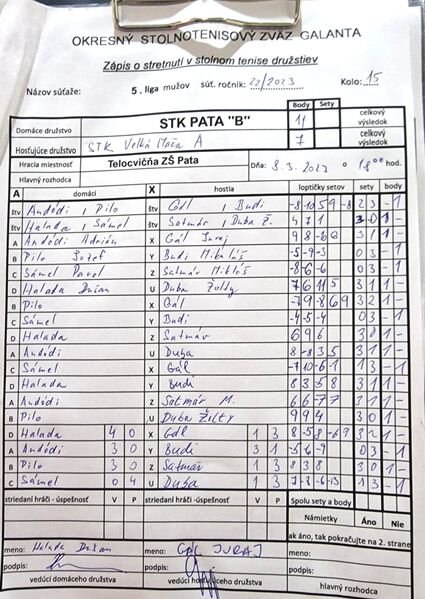 OKRESNÝ STOLNOTENISOVÝ ZVÄZ GALANTA
Zápis o stretnutí v stolnom tenise družstiev
Názov súťaže: 5. liga mužov súť. ročník: 22/2023 Kolo: 15
Body Sety
Domáce družstvo STK PATA "B" 11 celkový výsledok
Hosťujúce družstvo STK Veľká Mača A 7 celkový výsledok
Hracia miestnosť Telocvičňa ZŠ Pata Dňa: 8.3.2023 o 18:00 hod.
Hlavný rozhodca
A domáci X hostia loptičky setov sety body
štv Andódi, Pilo štv Gál, Budi -8-1059-8 23 -1
štv Halada, Sámel štv Satmár, Duba Ž. 471 30 1-
A Andódi Adrián X Gál Juraj 31 1-
B Pilo Jozef Y Budi Mikuláš -5-9-3 03 -1
C Sámel Pavol Z Satmár Mikuláš -8-6-6 03 -1
D Halada Dušan U Duba Žolty 76115 31 1-
B Pilo X Gál -79-869 32 1-
C Sámel Y Budi -4-5-4 03 -1
D Halada Z Satmár 696 30 1-
A Andódi U Duba 8-835 31 1-
C Sámel X Gál -710-61 13 -1
D Halada Y Budi 8358 31 1-
A Andódi Z Satmár M. 66-77 31 1-
B Pilo U Duba Žolty 994 30 1-
D Halada 4 0 X Gál 1 3 8-58-69 32 1-
A Andódi 3 0 Y Budi 3 1 -5-6-9 03 -1
B Pilo 3 0 Z Satmár 1 3 838 30 1-
C Sámel 0 4 U Duba 1 3 7-8-6-13 13 -1
striedaní hráči - úspešnosť V P striedaní hráči - úspešnosť V P Spolu sety a body
Námietky Áno Nie
ak áno, tak pokračujte na 2. strane
meno: Halada Dušan meno: Gál JURAJ
podpis: podpis:
vedúci domáceho družstva vedúci hosťujúceho družstva hlavný rozhodca